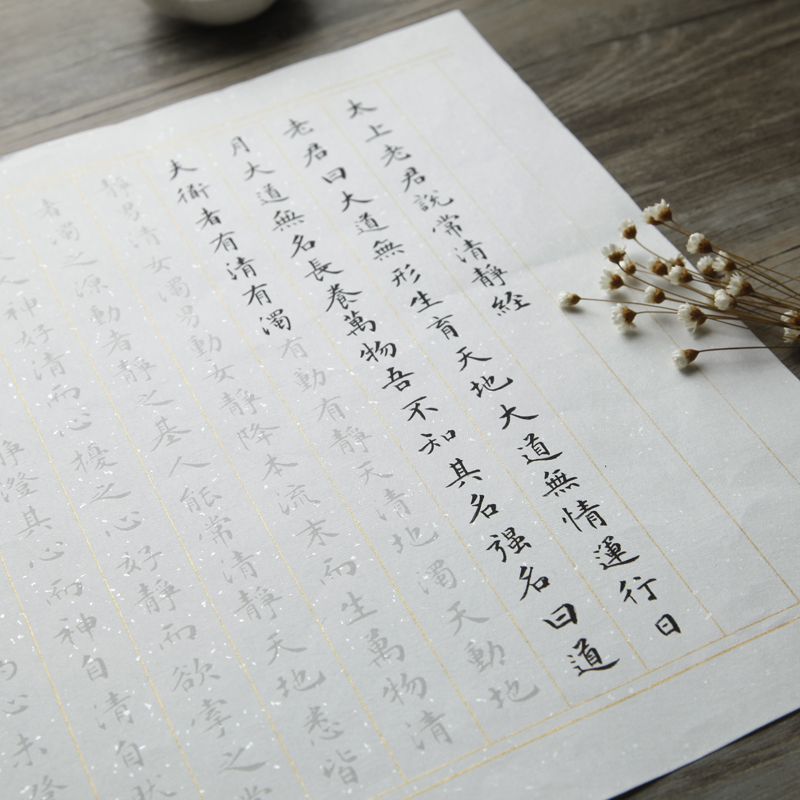 太上老君說常清靜経
老君曰大道無形生育天地大道無情運行日
月大道無名長養萬物吾不知其名强名曰道
夫衜者有清有濁有動有靜天清地濁天動地
靜男清女濁男動女靜降本流末而生萬物清
者濁之源動者靜之基人能常清靜天地悉皆
人神好清而心擾之心好靜而欲牽之常
靜澄其心而神自清自然
心未澄